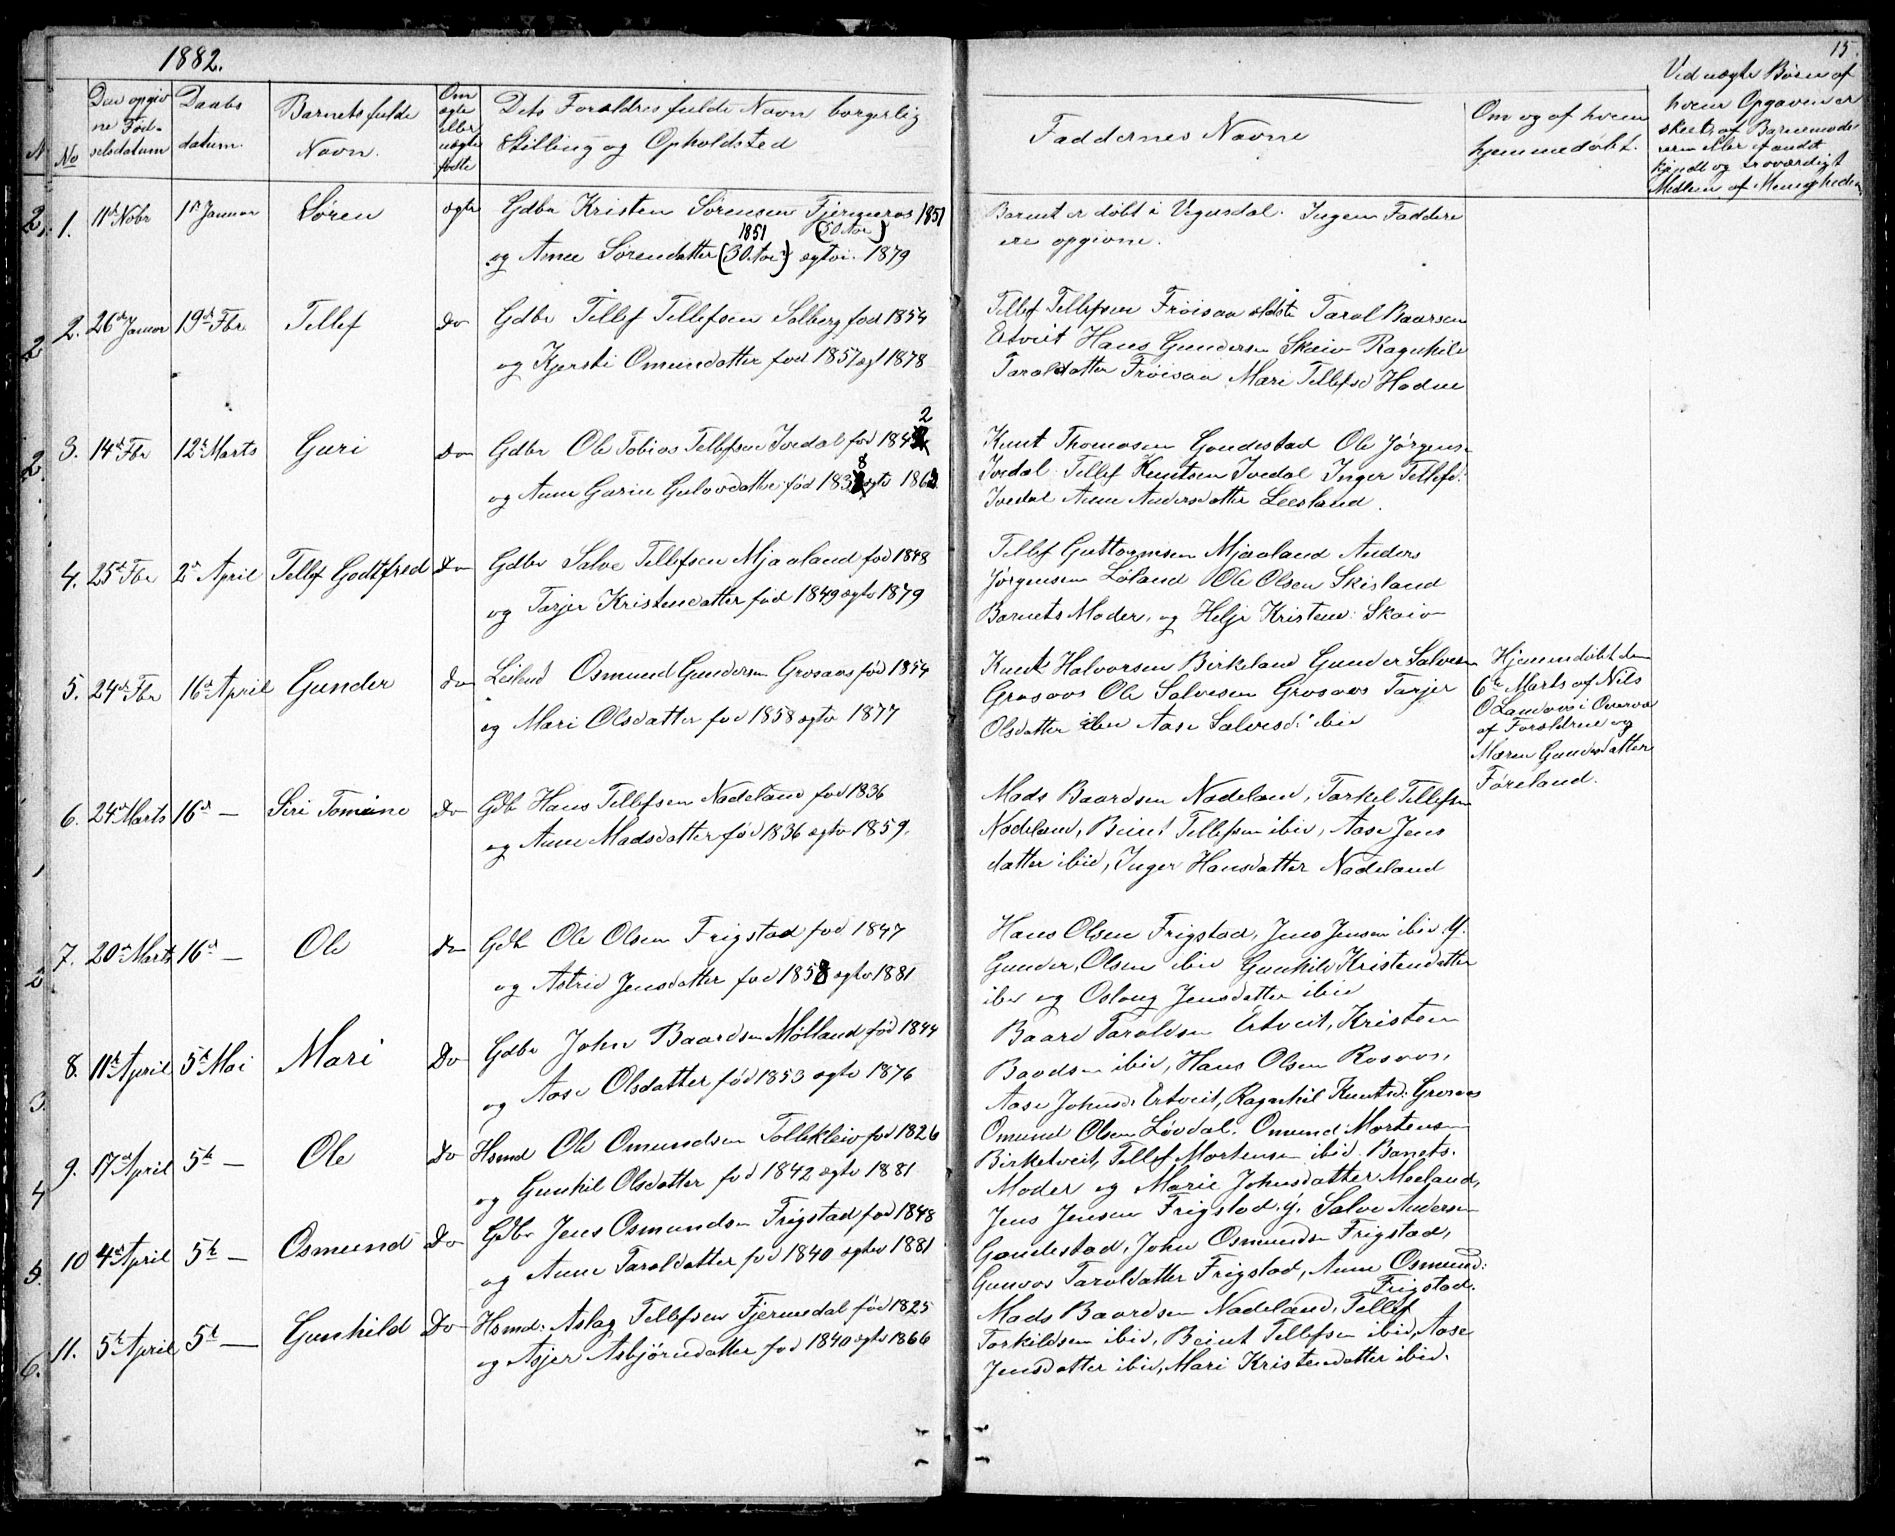 1882.
15.
No
Den opgiv
ne Fød-
selsdatum
Daabs
datum.
Barnets fulde
Navn.
Om
ægte
eller
uægte
fødte
Dets Forældres fulde Navn borgerlig
Stilling og Opholdsted
Faddernes Navne
Om og af hvem
hjemmedøbt.
Ved uægte Børn af
hvem Opgaven er
skeet, af Barnemode
ren eller et andt
kjendt og troværdigt
Medlem af Menigheden
1. 11te Nobr 1st Januar Søren ægte Gdbr Kristen Sørensen Fjermeros 1851
(30 Aar)
1851
og Anne Sørensdatter (30. Aar) ægtv. 1879
Barnet er døbt i Vegusdal. Ingen Faddere
ere opgivne.
2. 26de Januar 19de Fbr Tellef Do Gdbr Tellef Tellefsen Solberg fød 1854
og Kjersti Omundsdatter fød 1857 ægt 1878
Tellef Tellefsen Frøisaa ældste Tarol Baarsen
Ertveit Hans Gundersen Skaiv Ragnhild
Taraldsdatter Frøisaa Mari Tellefsd Hodne
3. 14de Fbr 12te Marts Guri Do Gdbr Ole Tobias Tellefsen Ivedal fød 1842
og Anne Gurine Gulovdatter fød 1838 ægtv 1862
Knut Thomasen Gaudestad Ole Jørgens.
Ivedal Tellef Knutsen Ivedal Inger Tellefd.
Ivedal Anne Andersdatter Leesland.
4. 25de Fbr 2den April Tellef Godtfred Do Gdbr Salve Tellefsen Mjaaland fød 1848
og Tarjer Kristensdatter fød 1849 ægtv 1879
Tellef Guttormsen Mjaaland Anders
Jørgensen Løland Ole Olsen Skisland
Barnets Moder, og Helje Kristensd: Skaiv
5. 24de Fbr 16de April Gunder Do Leilend Osmund Gundersen Grosaas fød 1854
og Mari Olsdatter fød 1858 ægtv 1877
Knut Halvorsen Birkeland Gunder Salvesen
Grosaas Ole Salvesen Grosaas Tarjer
Olsdatter ibid Aase Salvesd: ibid
Hjemmedøbt den
6te Marts af Nils
O Landaas i Overvær
af Forældrene og
Maren Gundersdatter
Føreland.
6. 24de Marts 16de — Siri Tomine Do Gdb Hans Tellefsen Nadeland fød 1836
og Anne Madsdatter fød 1836 ægtv 1859.
Mads Baardsen Nadeland, Tarkel Tellefsen
Nadeland, Beint Tellefsen ibid, Aase Jens
datter ibid, Inger Hansdatter Nadeland
7. 20de Marts 16de — Ole Do Gdb Ole Olsen Frigstad fød 1847
og Astrid Jensdatter fød 1858 ægtv 1881
Hans Olsen Frigstad, Jens Jensen ibid y.
Gunder, Olsen ibid Gunhild Kristensdatter
ibid og Oslaug Jensdatter ibid
8. 11te April 5te Mai Mari Do Gdbr John Baardsen Mølland fød 1844
og Aase Olsdatter fød 1853 ægtv 1876
Baard Taraldsen Ertveit, Kristen
Baardsen ibid, Hans Olsen Rosaas,
Aase Johnsd: Ertveit, Ragnhil Knutsd: Grosaas
9. 17de April 5te — Ole Do Hsmd Ole Omundsen Tolleklev fød 1826
og Gunhil Olsdatter fød 1842 ægtv 1881
Omund Olsen Løvdal, Omund Mortensen
Birketveit, Tellef Mortensen ibid Banets
Moder og Marie Johnsdatter Moeland,
10 4de April 5te — Osmund Do Gdbr Jens Osmundsen Frigstad fød 1848
og Anne Taraldsdatter fød 1840 ægtv 1881
Jens Jensen Frigstad y. Salve Andersen
Gaudestad, John Osmundsen Frigstad,
Gunvor Taraldsdatter Frigstad, Anne Osmund:
Frigstad.
11. 5te April 5te — Gunhild Do Hsmd. Aslag Tellefsen Fjermedal fød 1825
og Asjer Asbjørnsdatter fød 1840 ægtv 1866
Mads Baardsen Nadeland, Tellef
Torkildsen ibid, Beint Tellefsen ibid, Aase
Jensdatter ibid, Mari Kristensdatter ibid.